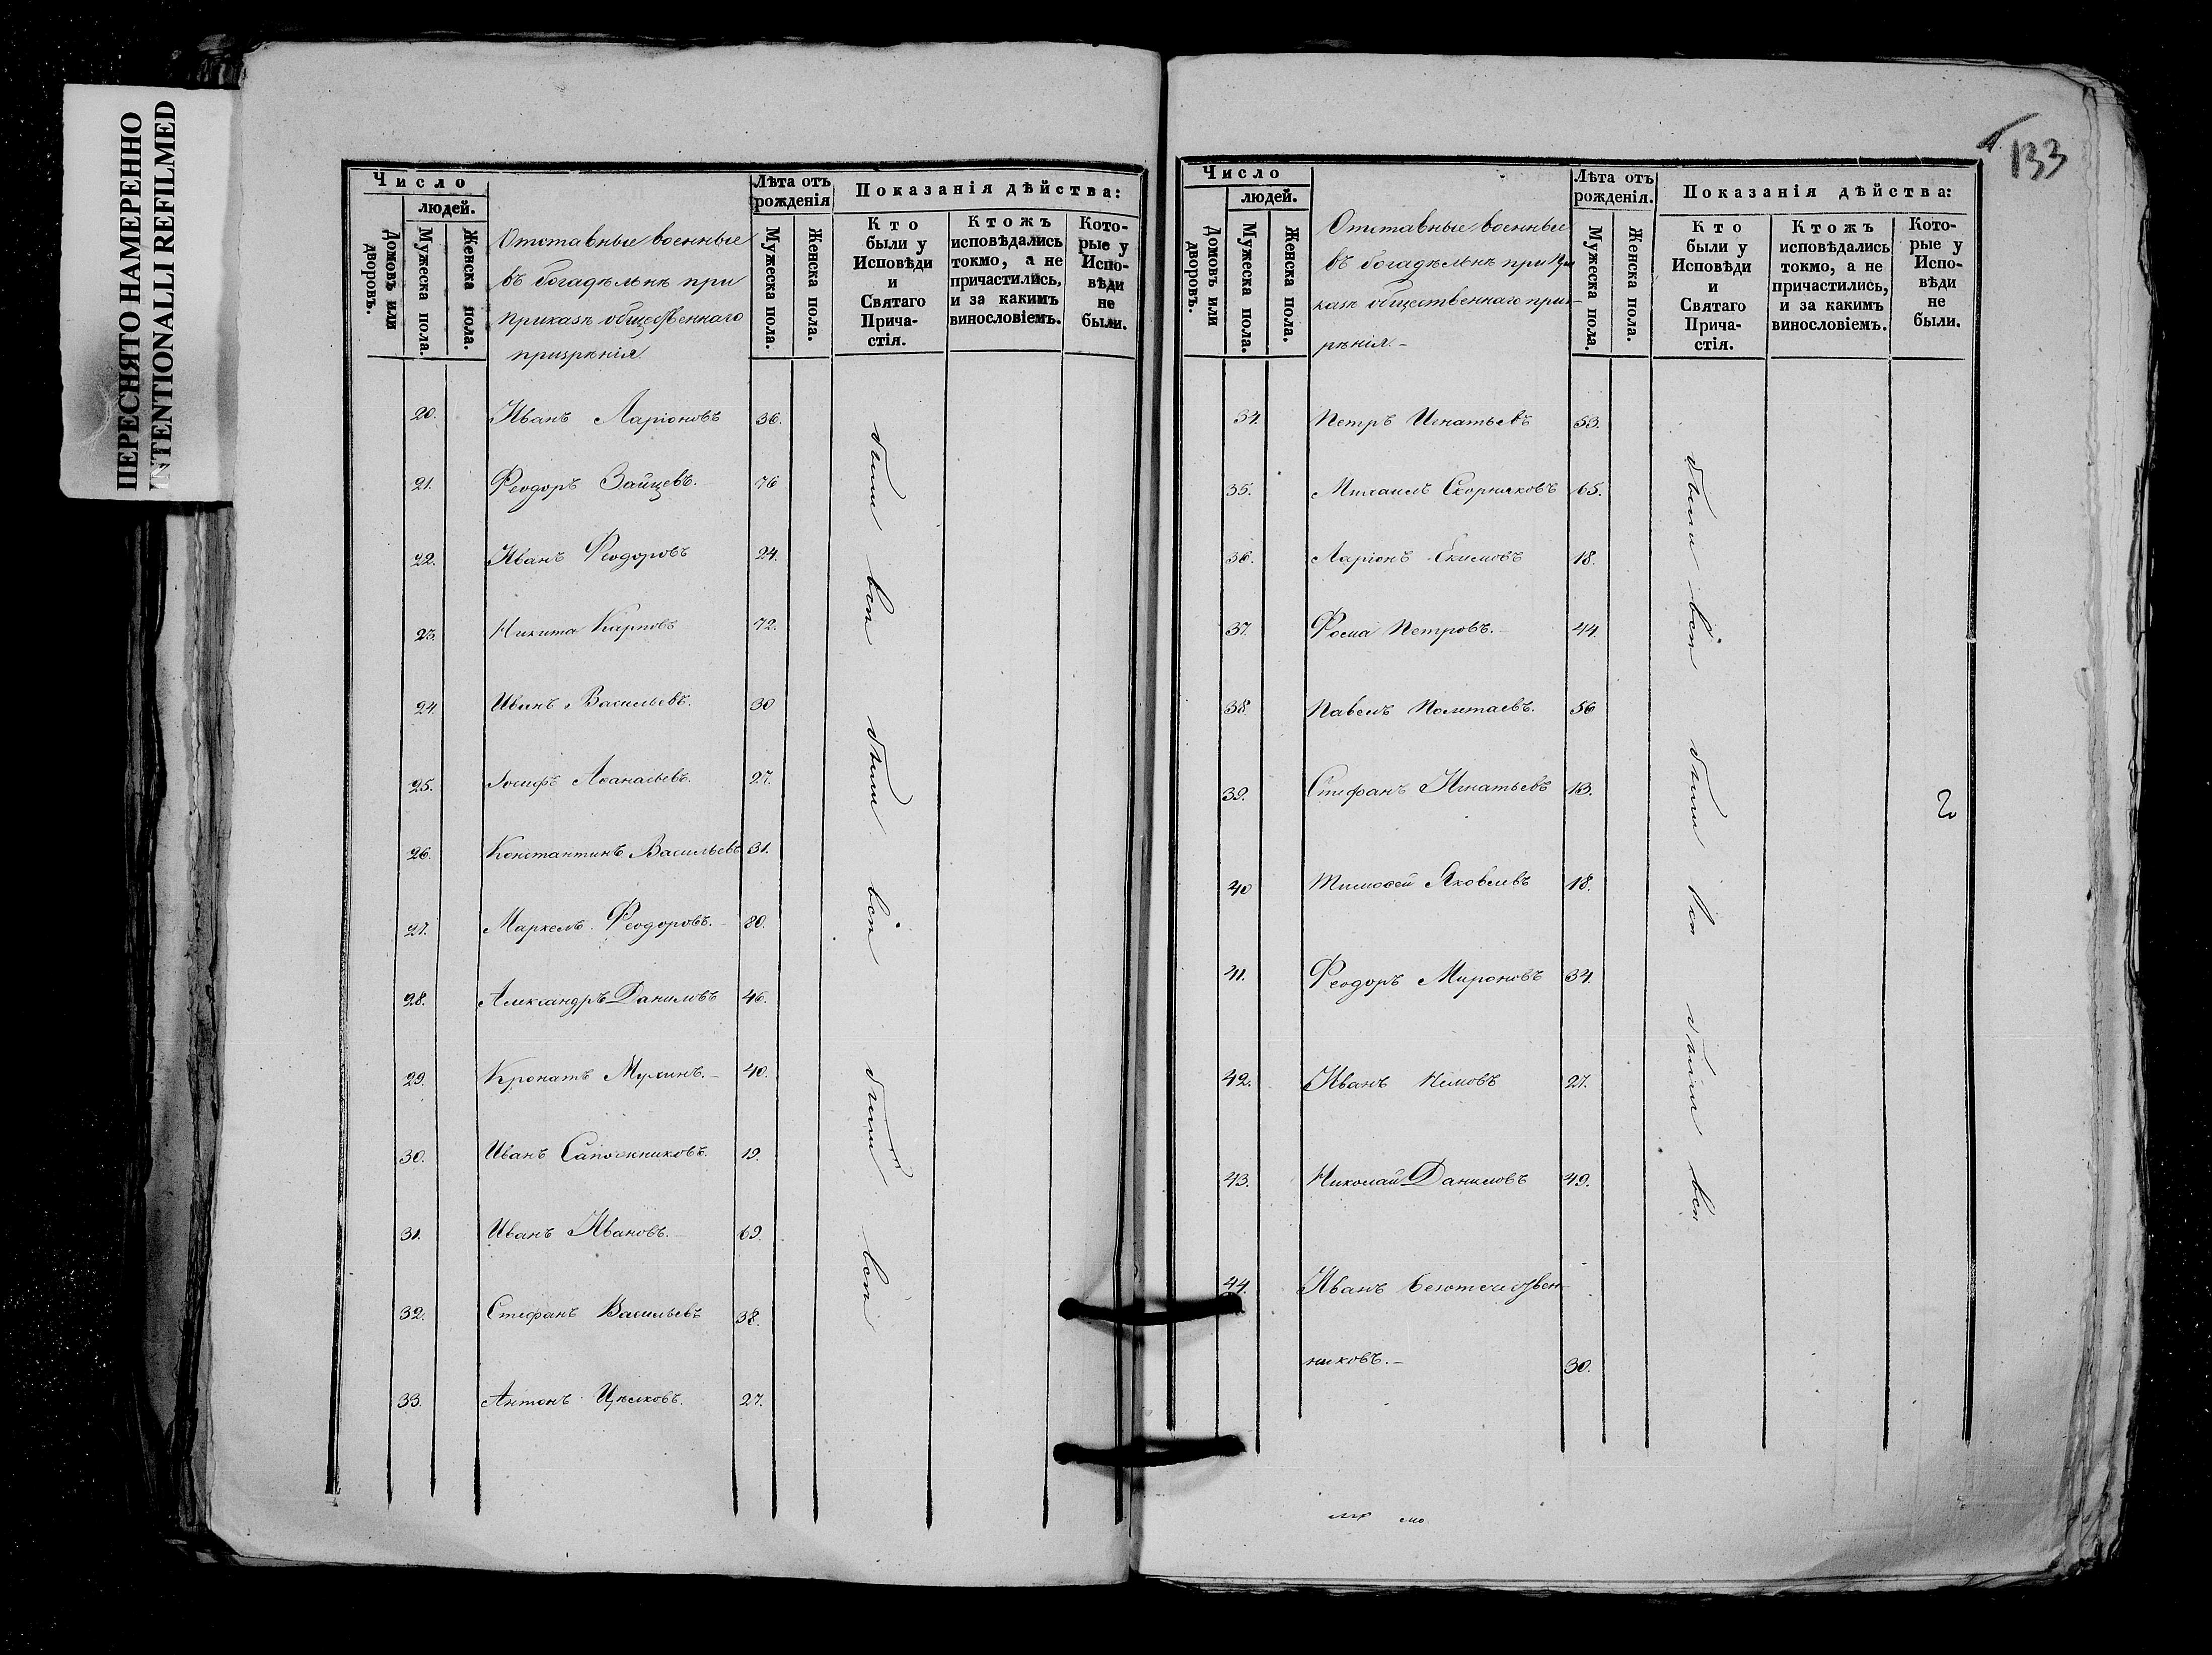 ПЕРЕСНЯТО НАМЕРЕННО
INTENTIONALLI REFILMED
Число
людей.
Домовъ или дворовъ.
Мужеска пола.
Женска пола.
Отставные военные
въ богадѣльнѣ при
приказѣ общественнаго
призрѣнія.
Лѣта отъ рожденія
Мужеска пола.
Женска пола.
Показанія дѣйства:
Кто были у Исповѣди и Святаго Прича-стія.
Ктожъ исповѣдались токмо, а не причастились, и за какимъ винословіемъ.
Кото-рые у Испо-вѣди не были.
20. Иванъ Ларіоновъ 36.
21. Феодоръ Зайцевъ. 76
22. Иванъ Феодоровъ 24.
23. Никита Карповъ 72.
24. Иванъ Васильевъ. 30
25. Іосифъ Аѳанасьевъ. 27.
26. Константинъ Васильевъ 31.
27. Маркелъ Феодоровъ. 80.
28. Александръ Даниловъ 46.
29. Кронатъ Мухинъ. 40.
30. Иванъ Сапожниковъ. 19.
31. Иванъ Ивановъ. 69.
32. Стефанъ Васильевъ 38.
33. Антонъ Цѣлковъ. 27.
были всѣ были всѣ были всѣ
133
Число
людей.
Домовъ или дворовъ.
Мужеска пола.
Женска пола.
Отставные военные
въ богадѣльнѣ при При-
казѣ общественнаго приз-
рѣнія.-
Лѣта отъ рожденія.
Мужеска пола.
Женска пола.
Показанія дѣйства:
Кто были у Исповѣди и Святаго Прича-стія.
Ктожъ исповѣдались токмо, а не причастились, и за какимъ винословіемъ.
Кото-рые у Испо-вѣди не были.
34. Петръ Игнатьевъ 53.
35. Михаилъ Скорняковъ 65.
36. Ларіонъ Екимовъ 18.
37. Фома Петровъ. 44.
38. Павелъ Полетаевъ. 56
39. Стефанъ Игнатьевъ 13.
40 Тимоѳей Яковлевъ 18.
41. Феодоръ Мироновъ 34.
42. Иванъ Немовъ 27.
43. Николай Даниловъ 49.
44. Иванъ Безотечествен-
никовъ.- 30.
были всѣ были всѣ были всѣ